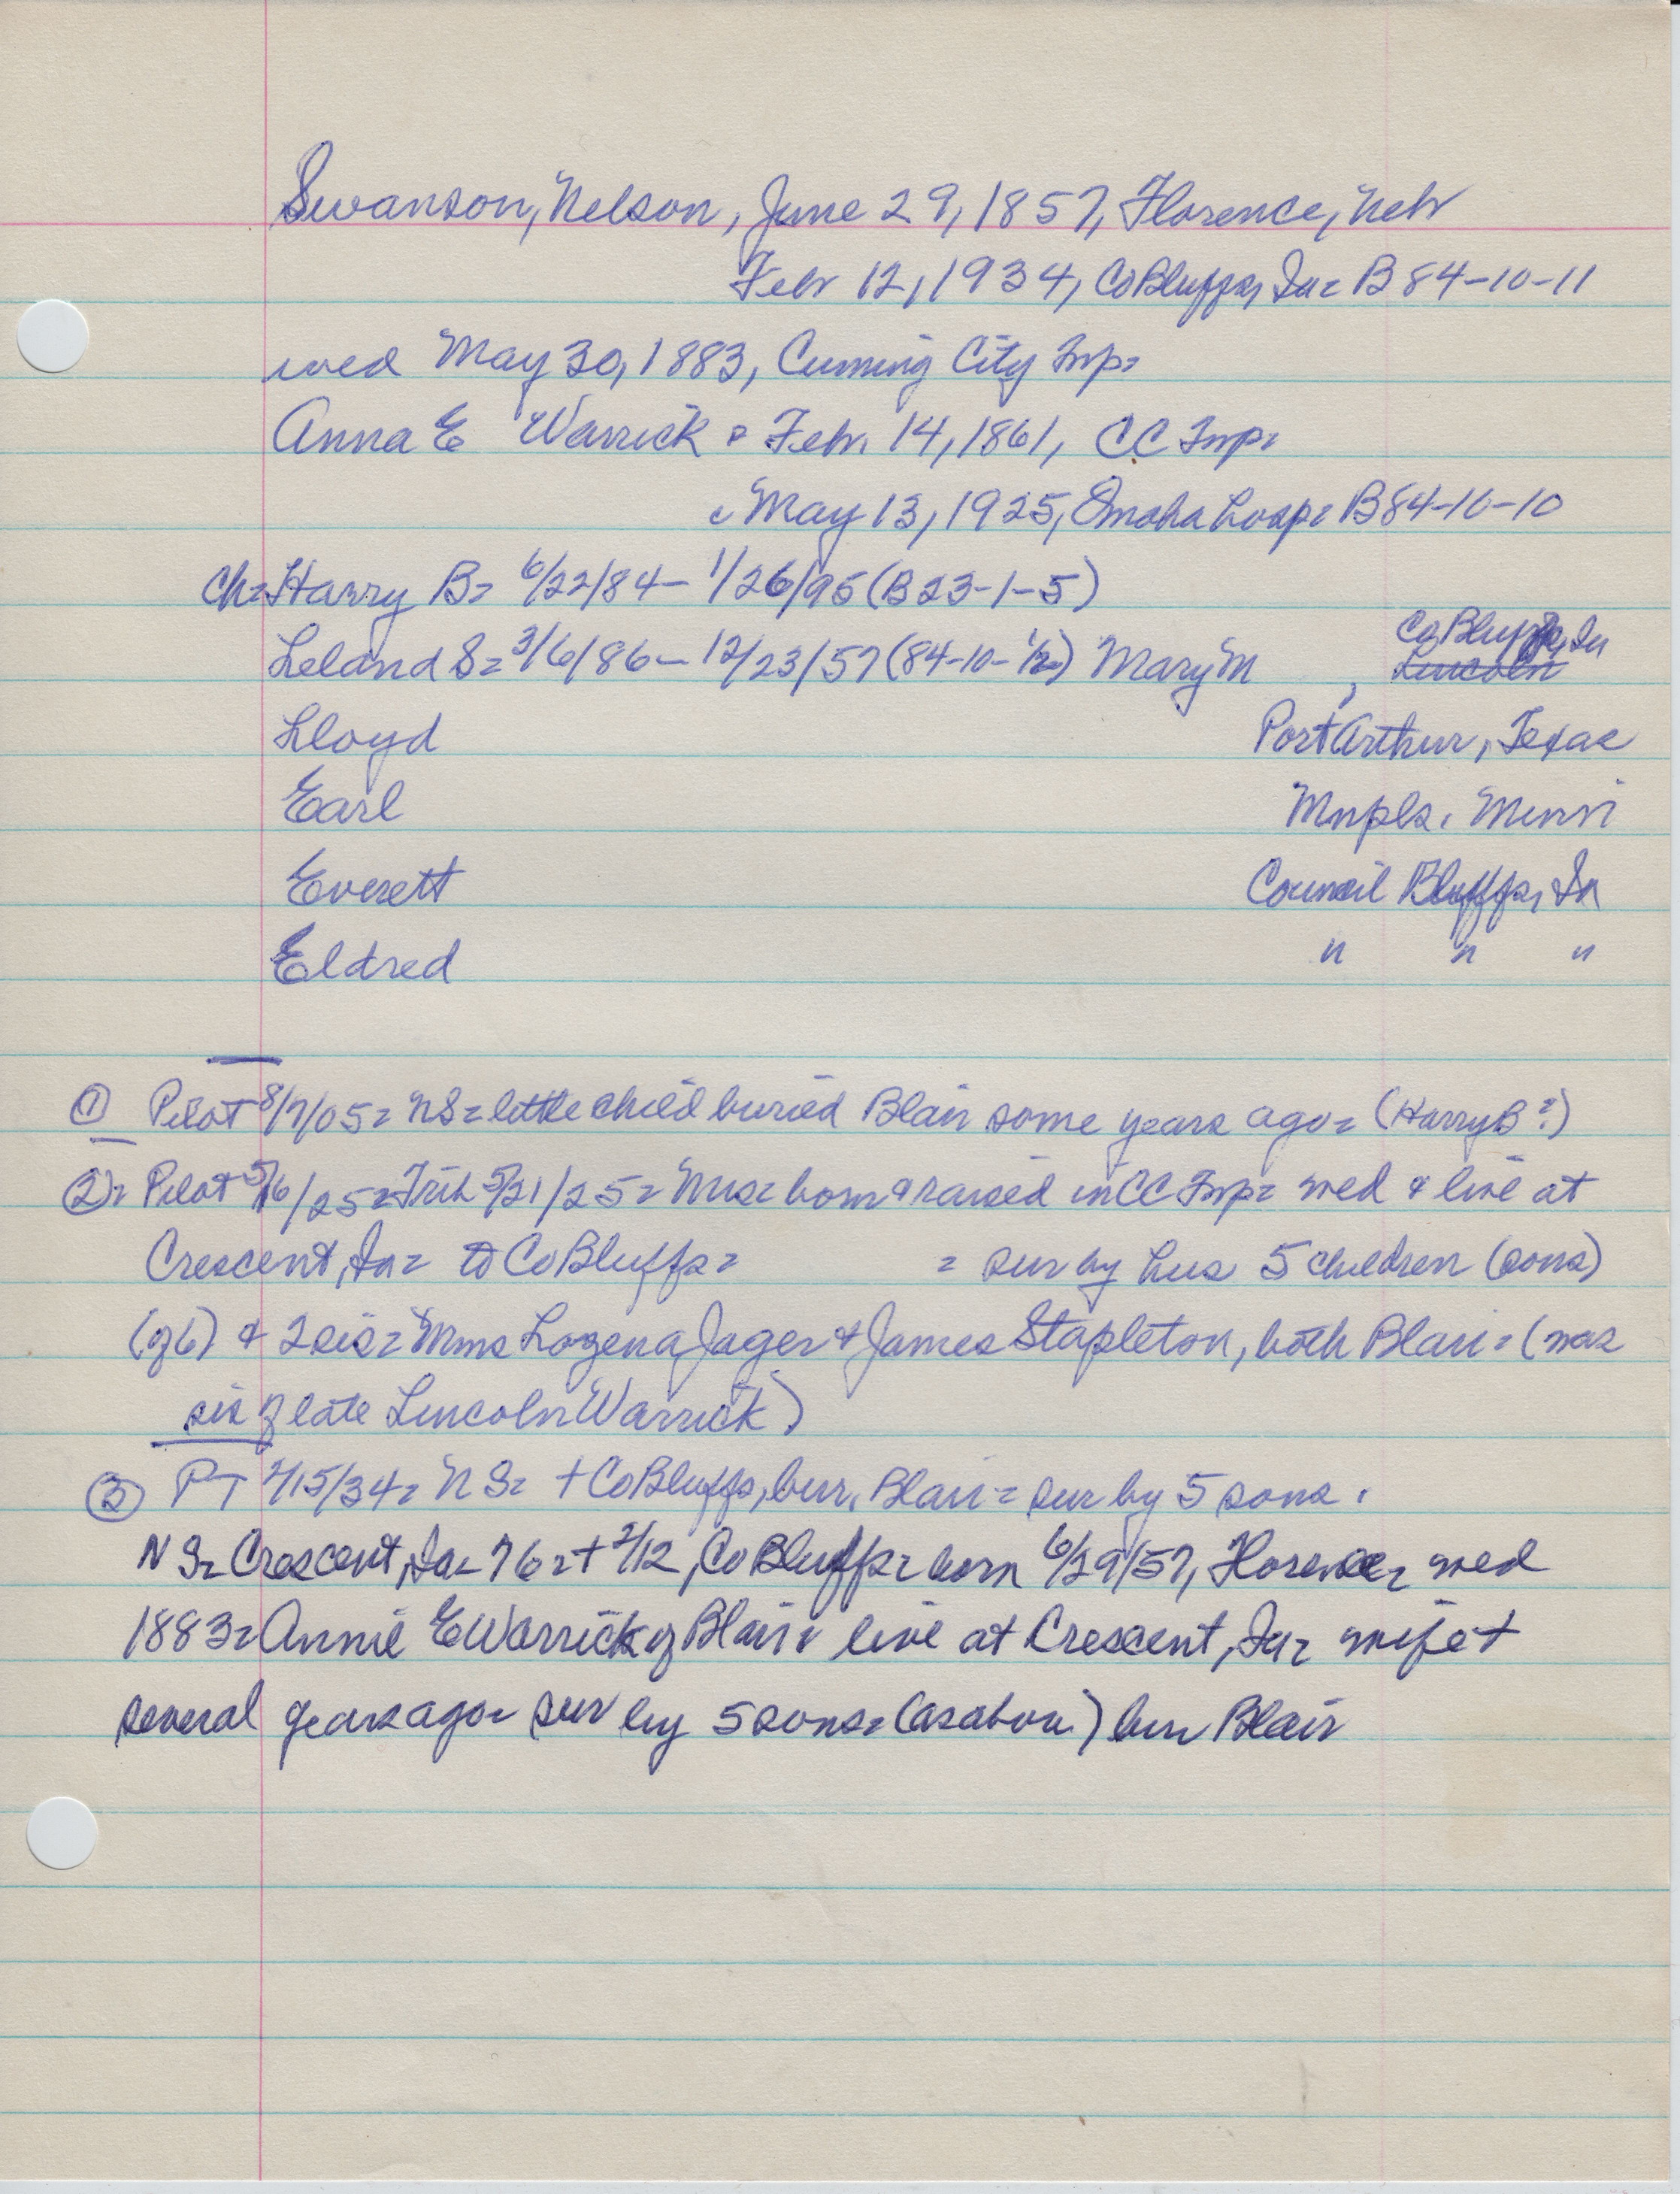 Swanson, Nelson, June 29, 1857, Florence, Nebr
Febr 12, 1934, CoBluffs, Ia= B 84-10-11
wed May 30, 1883, Cuming City Twp=
Anna E Warrick = Febr. 14, 1861, CC Twp=
May 13, 1925, Omaha hosp= B84-10-10
Ch= Harry B= 6/22/84- 1/26/95 (B23-1-5)
Co Bluffs, Ia
Leland S= 3/6/86- 12/23/57 (84-10-1/2) Mary M , Lincoln
Lloyd Port Arthur, Texas
Earl Mnpls, Minn
Everett Council Bluffs, Ia
Eldred " " "
① Pilot 8/7/05= NS= little child buried Blair some years ago= (Harry B?)
②= Pilot 5/16/25= Trib 5/21/25= Mrs= born & raised in CC Twp= wed & live at
Crescent, Ia= to CoBluffs= = sur by hus 5 children (sons)
(of 6) & 2 sis= Mmes Lozena Jager & James Stapleton, both Blair= (was
sis of late Lincoln Warrick)
③ PT 2/15/34= NS= + CoBluffs, bur. Blair= sur by 5 sons.
NS= Crescent, Ia= 76=+ 2/12, Co Bluffs= born 6/29/57, Florence= wed
1883= Annie E Warrick of Blair= live at Crescent, Ia= wife +
several years ago= sur by 5 sons= (as abov.) bur Blair